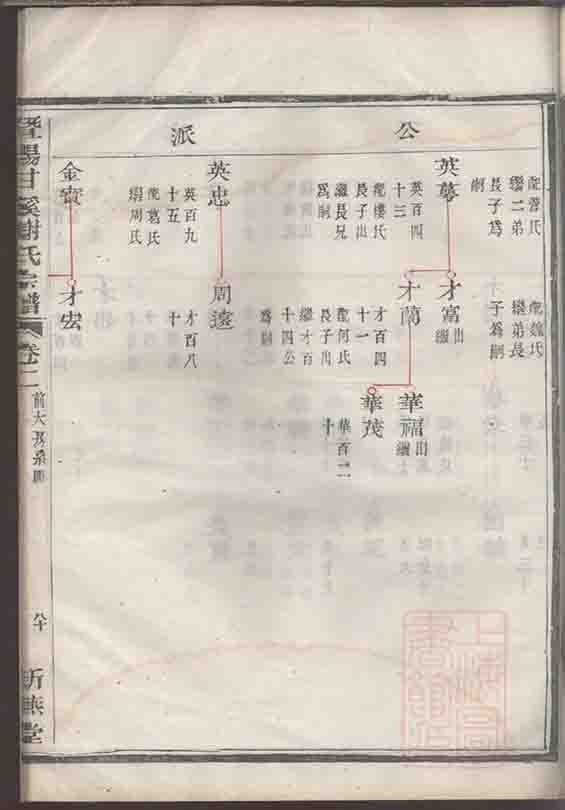 公
派
配曹氏
繼二弟
長子爲
嗣
配魏氏
繼弟長
子爲嗣
英夢
英百四
十三
配樓氏
長子出
繼長兄
爲嗣
才富
出
繼
才蘭
才百四
十一
配何氏
長子出
繼才百
十四公
爲嗣
華福
出
繼
華茂
華百二
十
英忠
英百九
十五
配葛氏
繼周氏
周邊
才百八
十
金寶
才宏
暨陽甘溪謝氏宗譜
卷二
前大房系圖
八十
上海圖書館藏